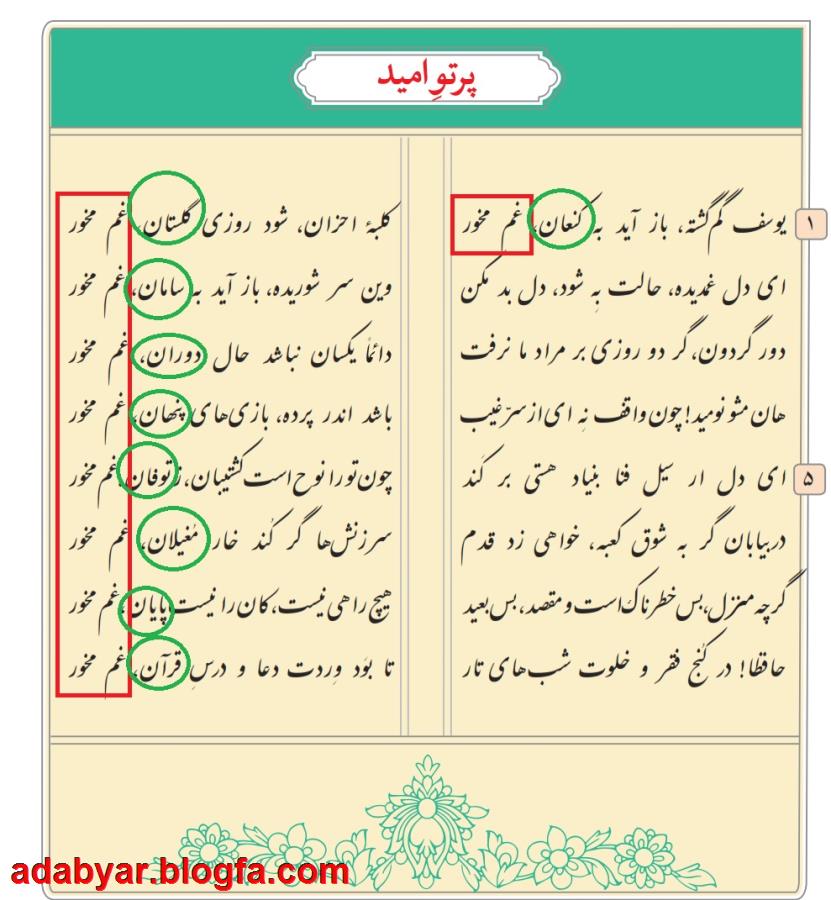 پرتوِ امید
۱ یوسف گم‌گشته، باز آید به کنعان، غم مخور کلبهٔ احزان، شود روزی گلستان، غم مخور
ای دل غمدیده، حالت بِه شود، دل بد مکن وین سر شوریده، باز آید به سامان، غم مخور
دور گردون، گر دو روزی بر مراد ما نرفت دائماً یکسان نباشد حال دوران، غم مخور
هان مشو نومید! چون واقف نِه ای از سرّ غیب باشد اندر پرده، بازی‌های پنهان، غم مخور
۵ ای دل ار سیل فنا بنیاد هستی بر کَند چون تو را نوح است کشتیبان، ز توفان، غم مخور
در بیابان گر به شوق کعبه، خواهی زد قدم سرزنش‌ها گر کُند خار مُغیلان، غم مخور
گرچه منزل، بس خطرناک است و مقصد، بس بعید هیچ راهی نیست، کان را نیست پایان، غم مخور
حافظا! در کُنج فقر و خلوت شب‌های تار تا بوَد وِردت دعا و درسِ قرآن، غم مخور
adabyar.blogfa.com